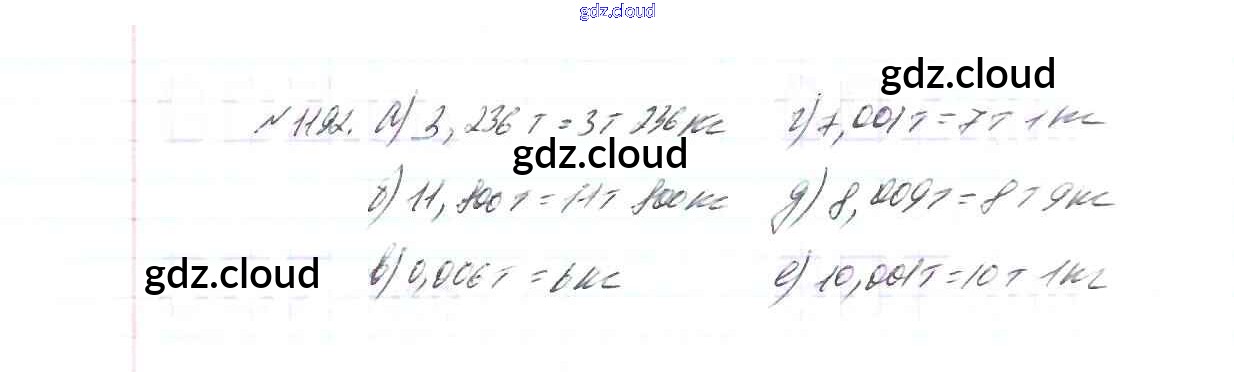 gdz.cloud
gdz.cloud
№1192. а) 3,236 т = 3 т 236 кг г) 7,001 т = 7 т 1 кг
gdz.cloud
б) 11,800 т = 11 т 800 кг д) 8,009 т = 8 т 9 кг
gdz.cloud
в) 0,006 т = 6 кг е) 10,001 т = 10 т 1 кг